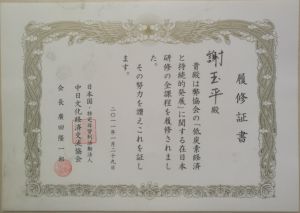 履修証書
謝玉平殿
貴殿は弊協会の「低炭素経済
と持続的発展」に関する在日本
研修の全課程を履修されまし
た。
その努力を讃えこれを証し
ます。
二〇一一年一月二十九日
日本国・特定非営利活動法人
中日文化経済交流協会
会長 廣田隆一郎